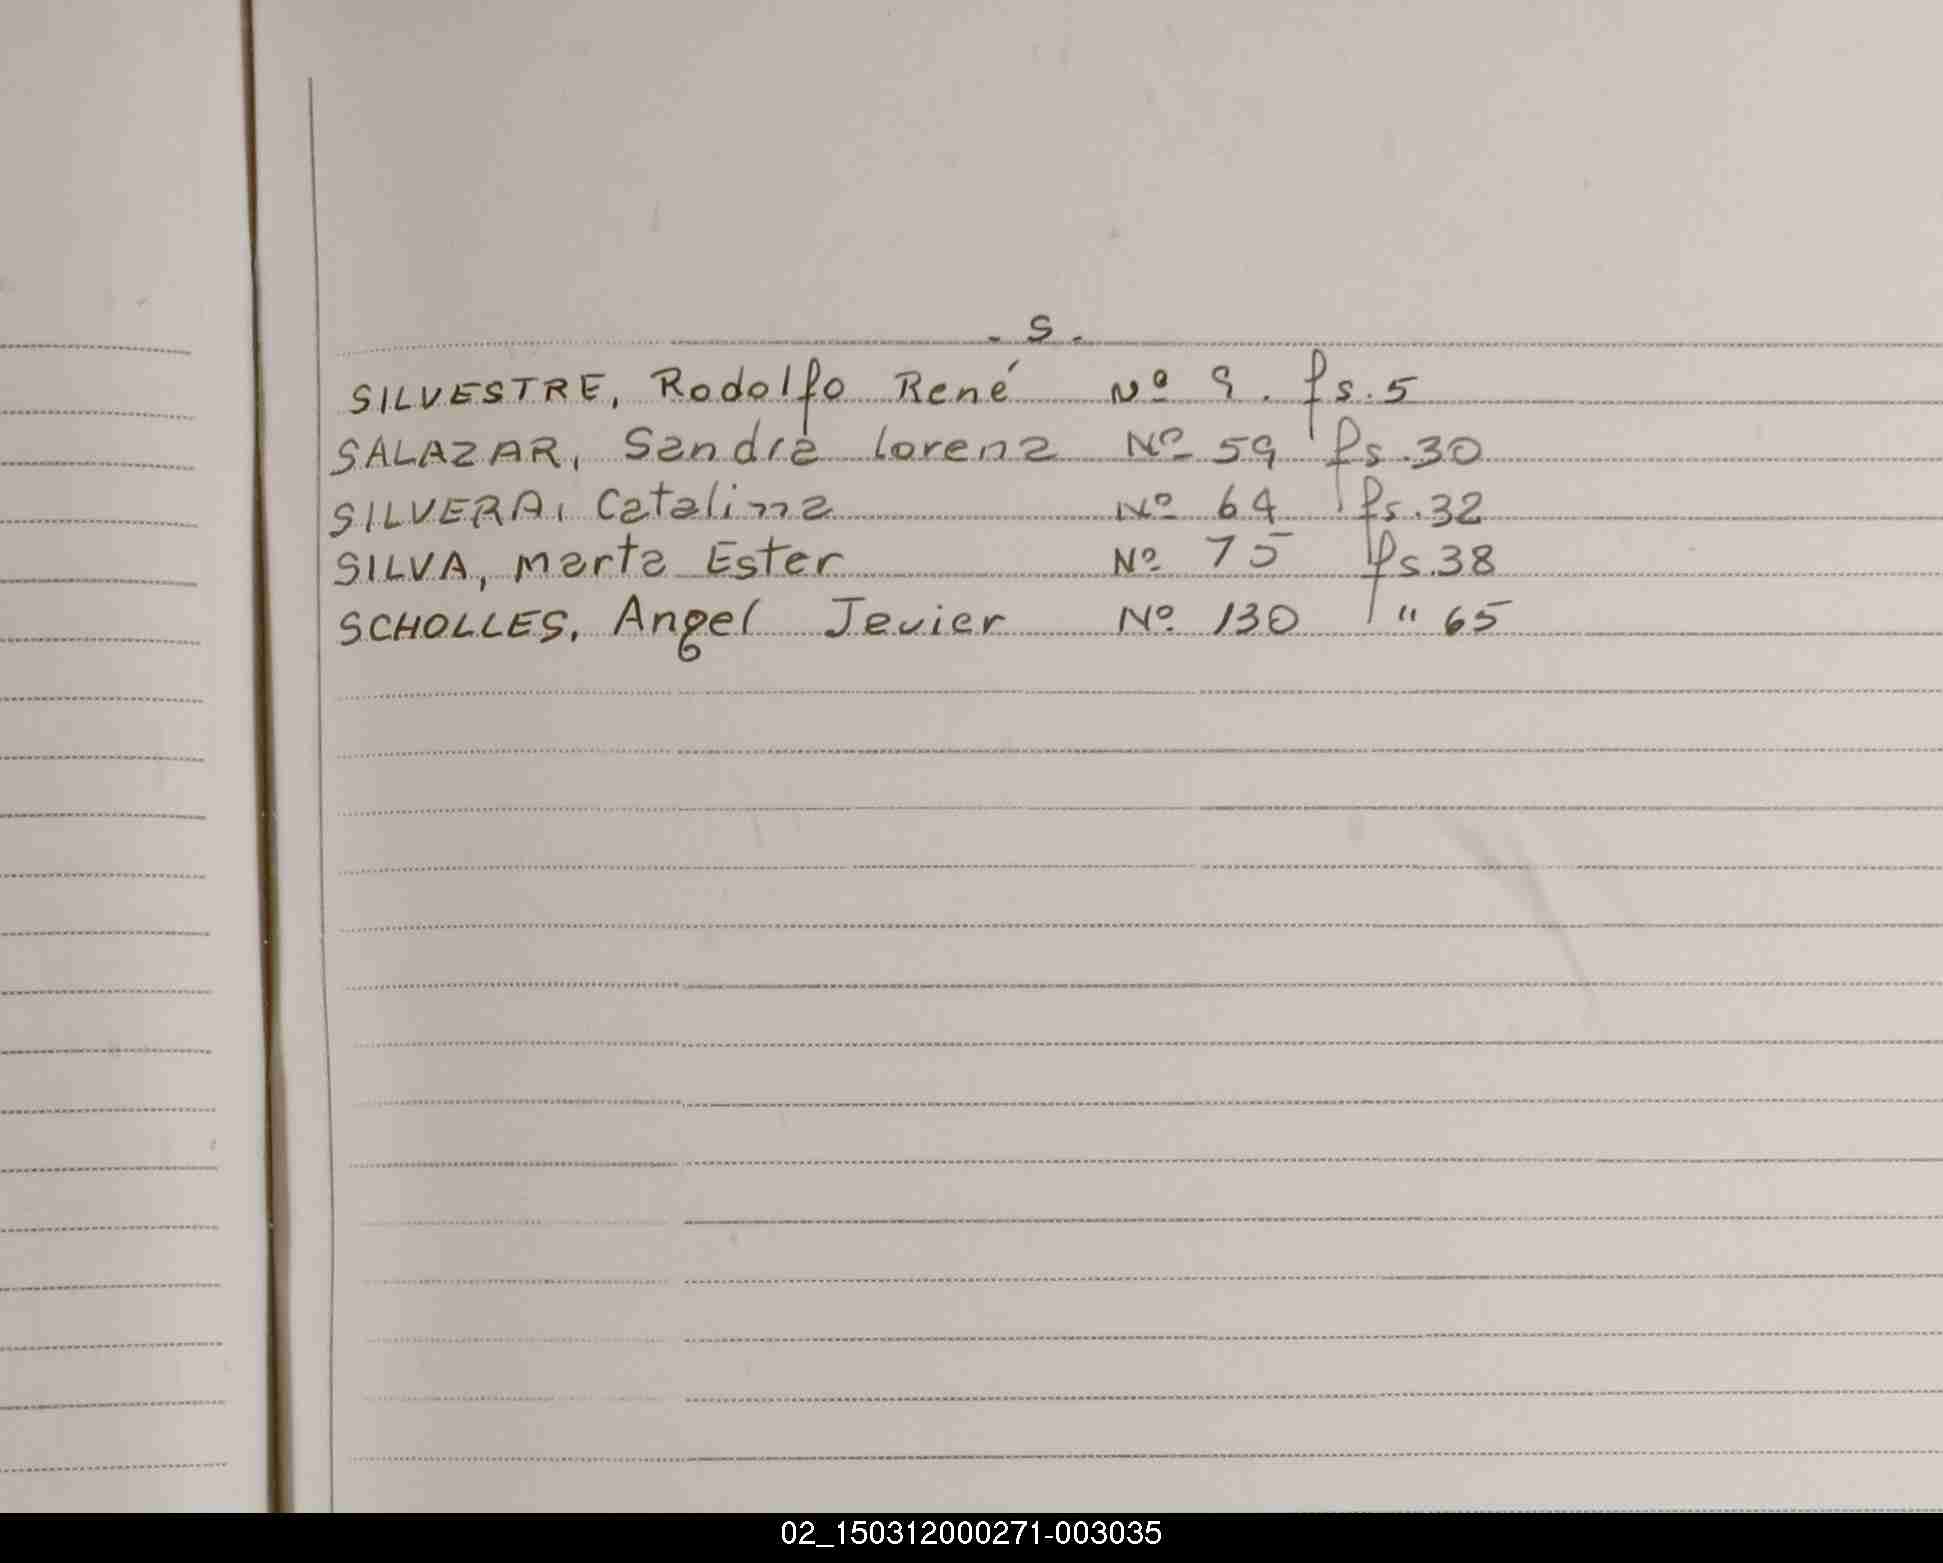 . S .
SILVESTRE, Rodolfo René Nº 9. fs. 5
SALAZAR, Sandra Lorena Nº 59 fs. 30
SILVERA, Catalina Nº 64 fs. 32
SILVA, Marta Ester Nº 75 fs. 38
SCHOLLES, Angel Javier Nº 130 " 65
02_150312000271-003035